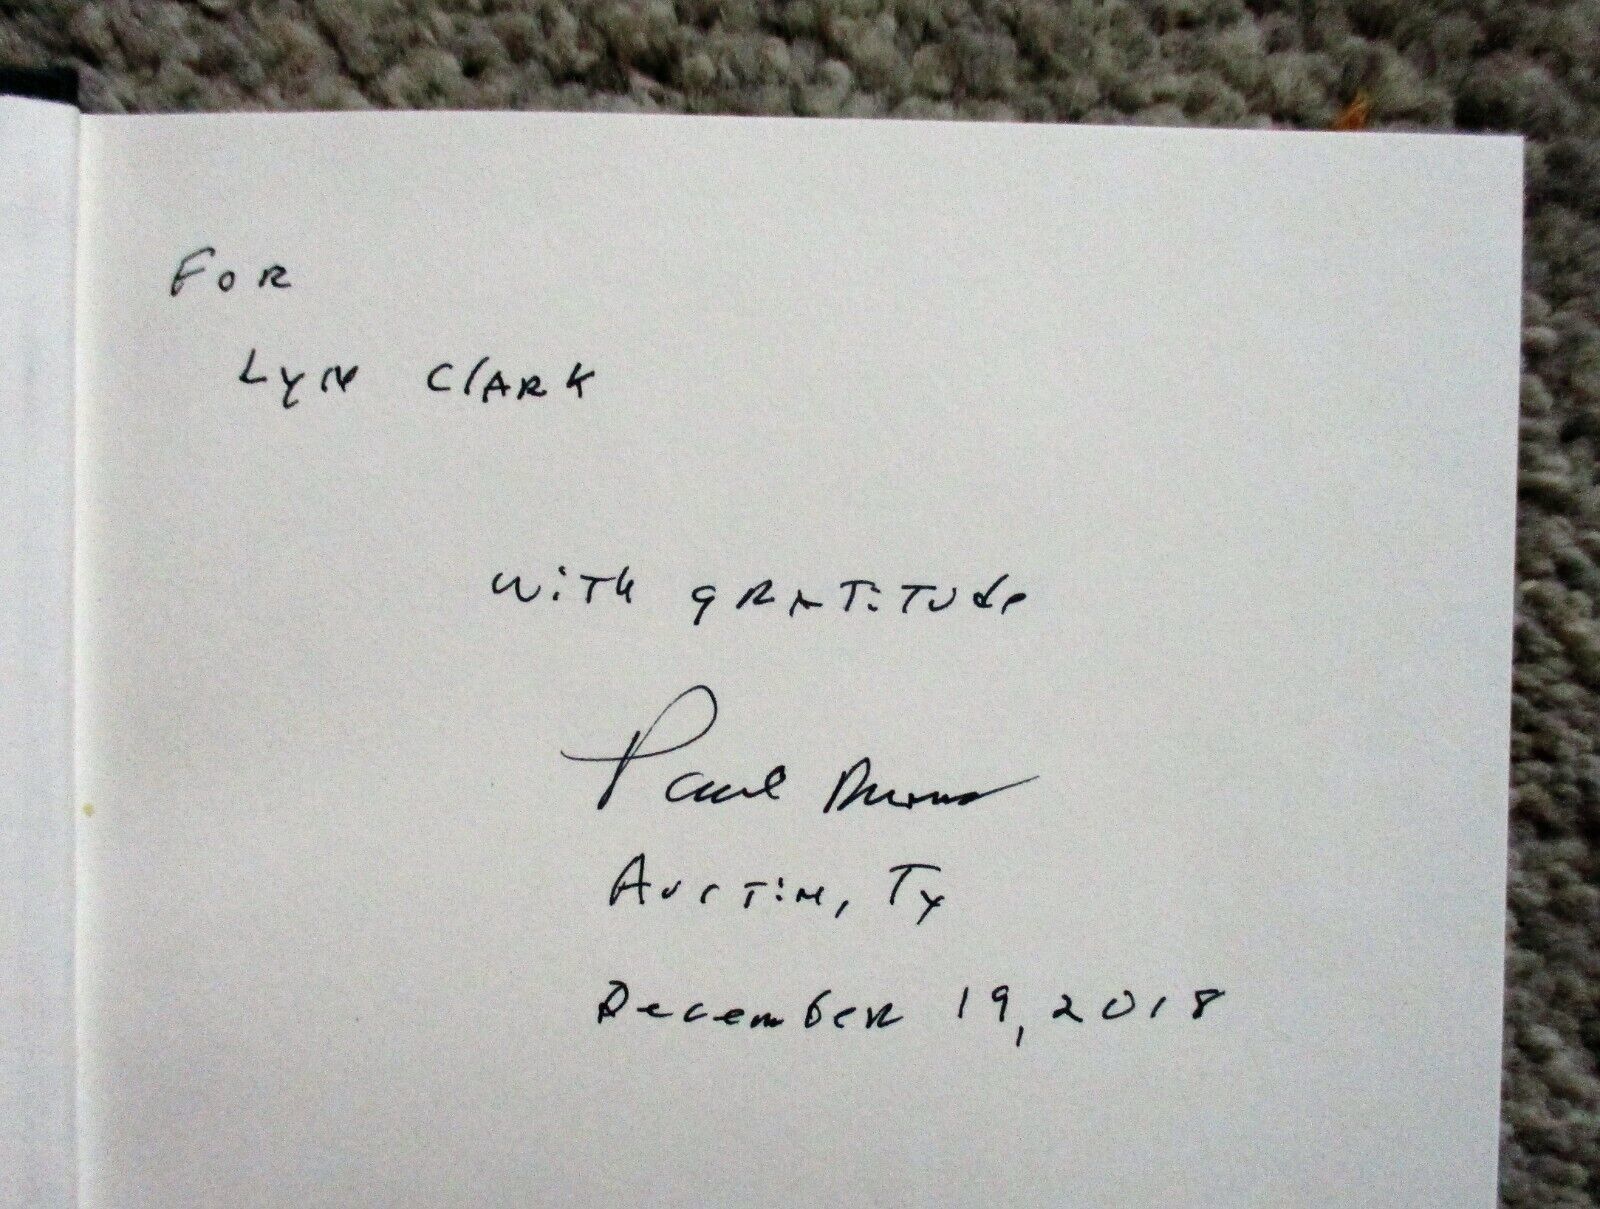 For
Lyn Clark
with gratitude
Paul Burns
Austin, Tx
December 19, 2018